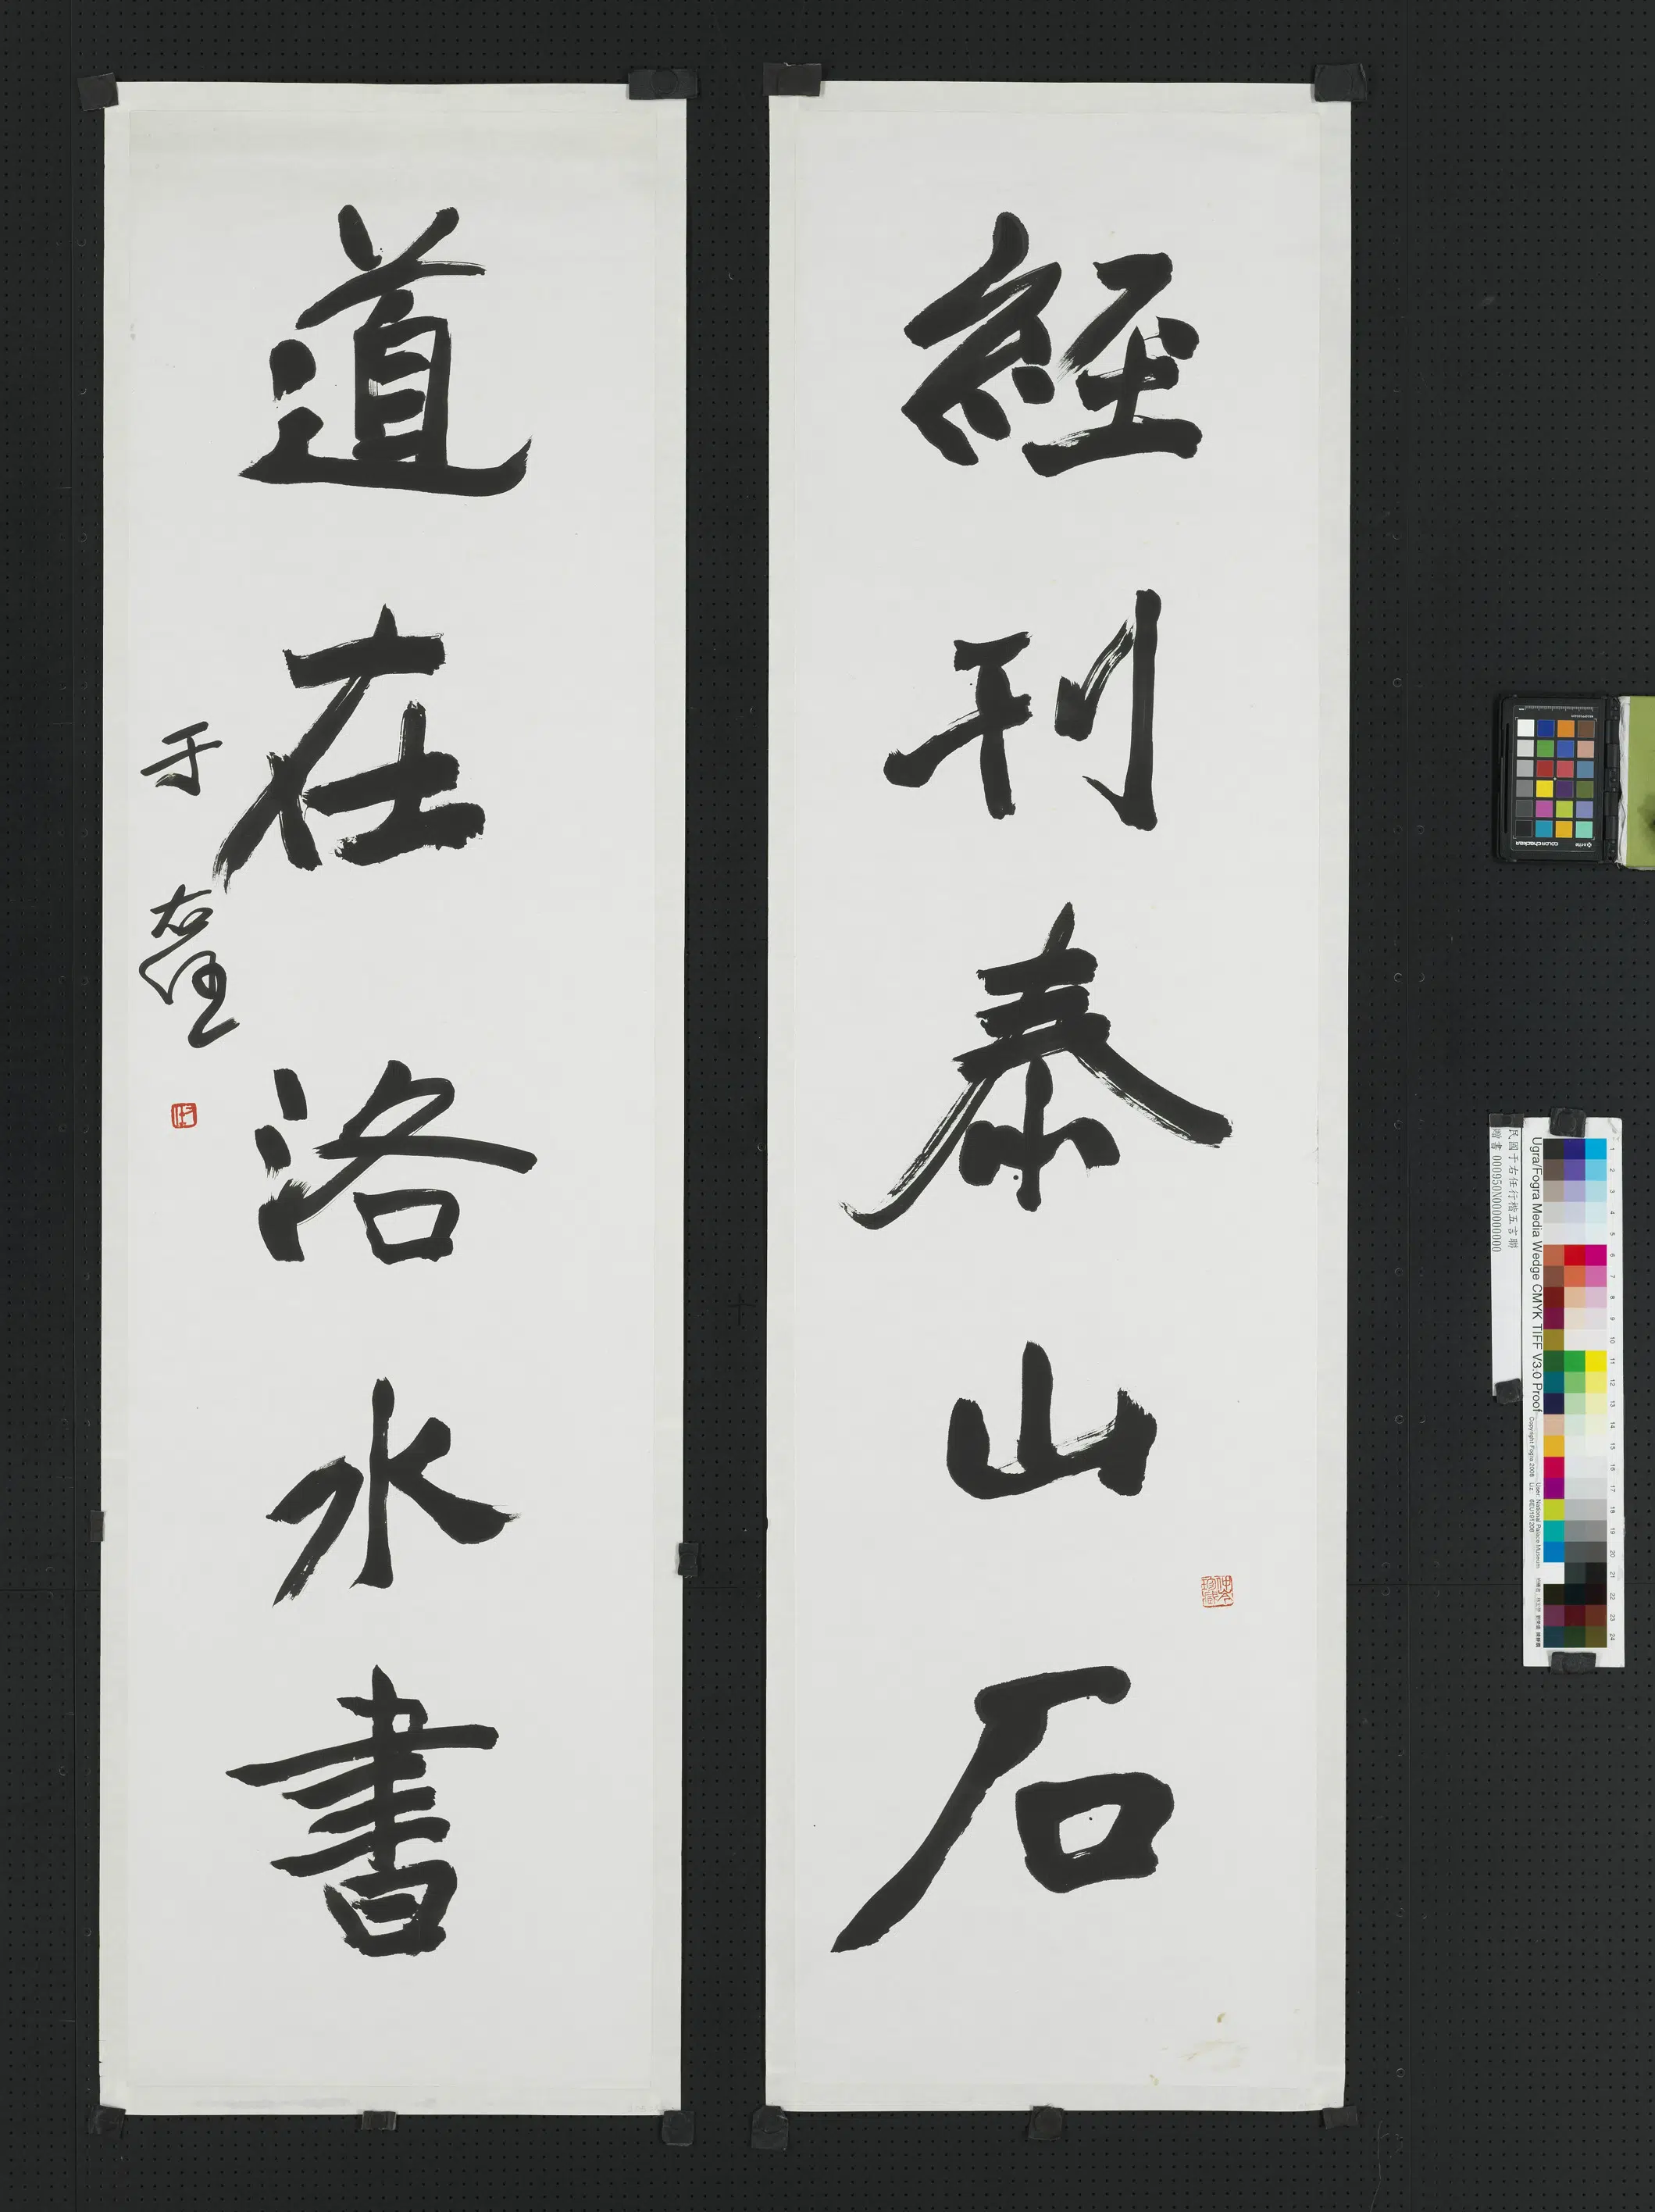 經刊泰山石
道在洛水書
于右任
民國于右任行楷五言聯
贈書 000950N000000000
Ugra/Fogra Media Wedge CMYK TIFF V3.0 Proof
Copyright Fogra 2008
User: National Palace Museum
colorchecker
x-rite
1
2
3
4
5
6
7
8
9
10
11
12
13
14
15
16
17
18
19
20
21
22
23
24